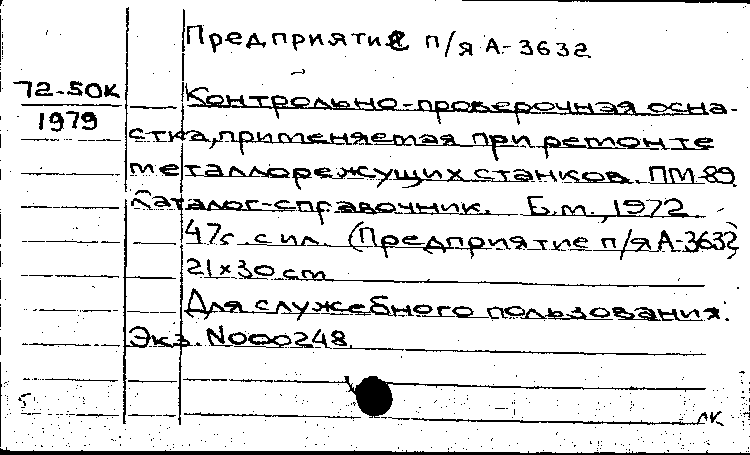 Предприятие п/я А-3632
72-50К
1979
Контрольно-проверочная осна-
стка, применяемая при ремонте
металлорежущих станков. ПМ-89.
Каталог-справочник. Б.м., 1972.
47с. с ил. (Предприятие п/я А-3632)
21×30 cm
Для служебного пользования.
Экз. N000248.
лк